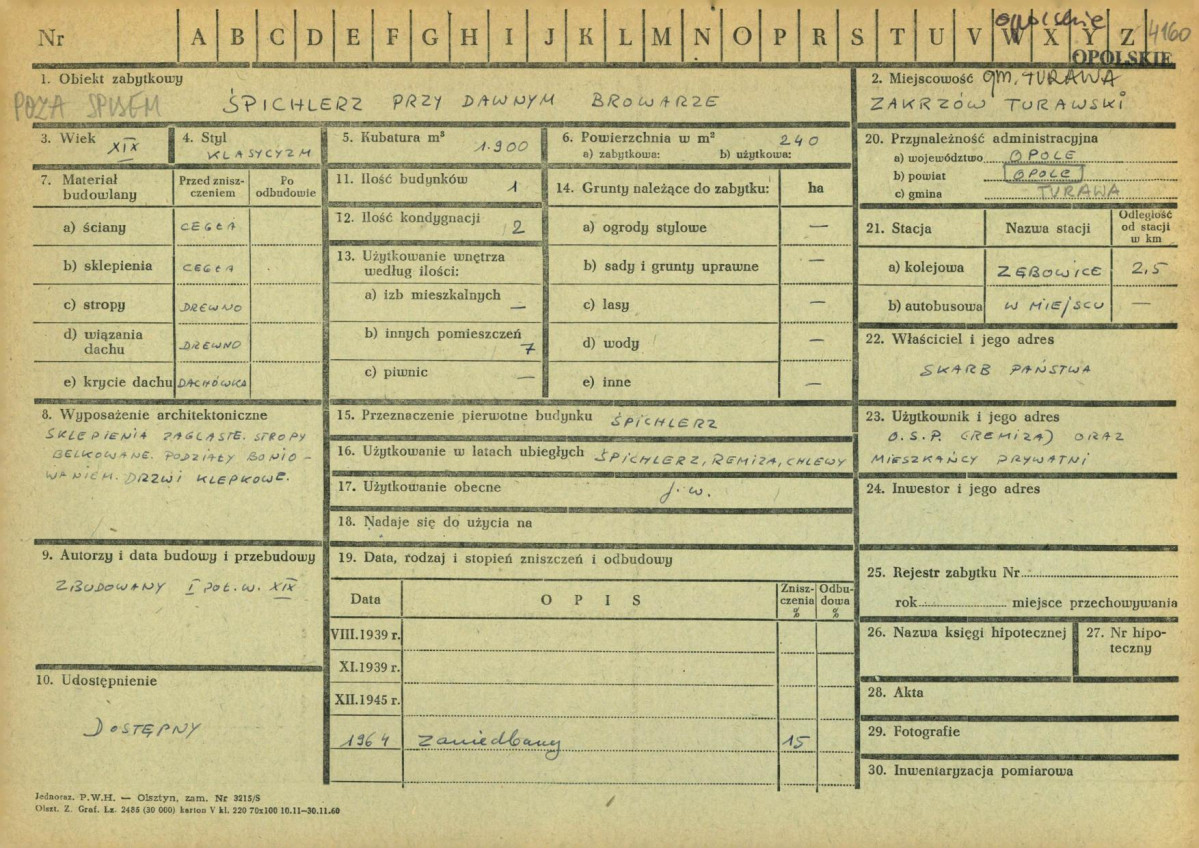 Nr A B C D E F G H I J K L M N O P R S T U V W X Y Z 4160
opolskie
OPOLSKIE
1. Obiekt zabytkowy
POZA SPISEM
ŚPICHLERZ PRZY DAWNYM BROWARZE
2. Miejscowość gm. TURAWA
ZAKRZÓW TURAWSKI
3. Wiek XIX
4. Styl KLASYCYZM
5. Kubatura m³ 1.900
6. Powierzchnia w m² 240
a) zabytkowa: b) użytkowa:
20. Przynależność administracyjna
a) województwo OPOLE
b) powiat OPOLE
c) gmina TURAWA
7. Materiał budowlany
Przed zniszczeniem
Po odbudowie
a) ściany CEGŁA
b) sklepienia CEGŁA
c) stropy DREWNO
d) wiązania dachu DREWNO
e) krycie dachu DACHÓWKA
11. Ilość budynków 1
12. Ilość kondygnacji 2
13. Użytkowanie wnętrza
według ilości:
a) izb mieszkalnych —
b) innych pomieszczeń 7
c) piwnic —
14. Grunty należące do zabytku: ha
a) ogrody stylowe —
b) sady i grunty uprawne —
c) lasy —
d) wody —
e) inne —
21. Stacja Nazwa stacji Odległość od stacji w km
a) kolejowa ZĘBOWICE 2,5
b) autobusowa W MIEJSCU —
22. Właściciel i jego adres
SKARB PAŃSTWA
8. Wyposażenie architektoniczne
SKLEPIENIA ZAGLASTE. STROPY
BELKOWANE. PODZIAŁY BONIO-
WANIEM. DRZWI KLEPKOWE.
15. Przeznaczenie pierwotne budynku ŚPICHLERZ
16. Użytkowanie w latach ubiegłych ŚPICHLERZ, REMIZA, CHLEWY
17. Użytkowanie obecne j.w.
18. Nadaje się do użycia na
23. Użytkownik i jego adres
O.S.P. (REMIZA) ORAZ
MIESZKAŃCY PRYWATNI
24. Inwestor i jego adres
9. Autorzy i data budowy i przebudowy
ZBUDOWANY I POŁ. W. XIX
10. Udostępnienie
DOSTĘPNY
19. Data, rodzaj i stopień zniszczeń i odbudowy
Data OPIS Zniszczenia % Odbudowa %
VIII.1939 r.
XI.1939 r.
XII.1945 r.
1964 zaniedbany 15
25. Rejestr zabytku Nr
rok miejsce przechowywania
26. Nazwa księgi hipotecznej
27. Nr hipoteczny
28. Akta
29. Fotografie
30. Inwentaryzacja pomiarowa
Jednoraz. P.W.H. — Olsztyn, zam. Nr 3215/S
Olszt. Z. Graf. Lz. 2485 (30 000) karton V kl. 220 70x100 10.11—30.11.60